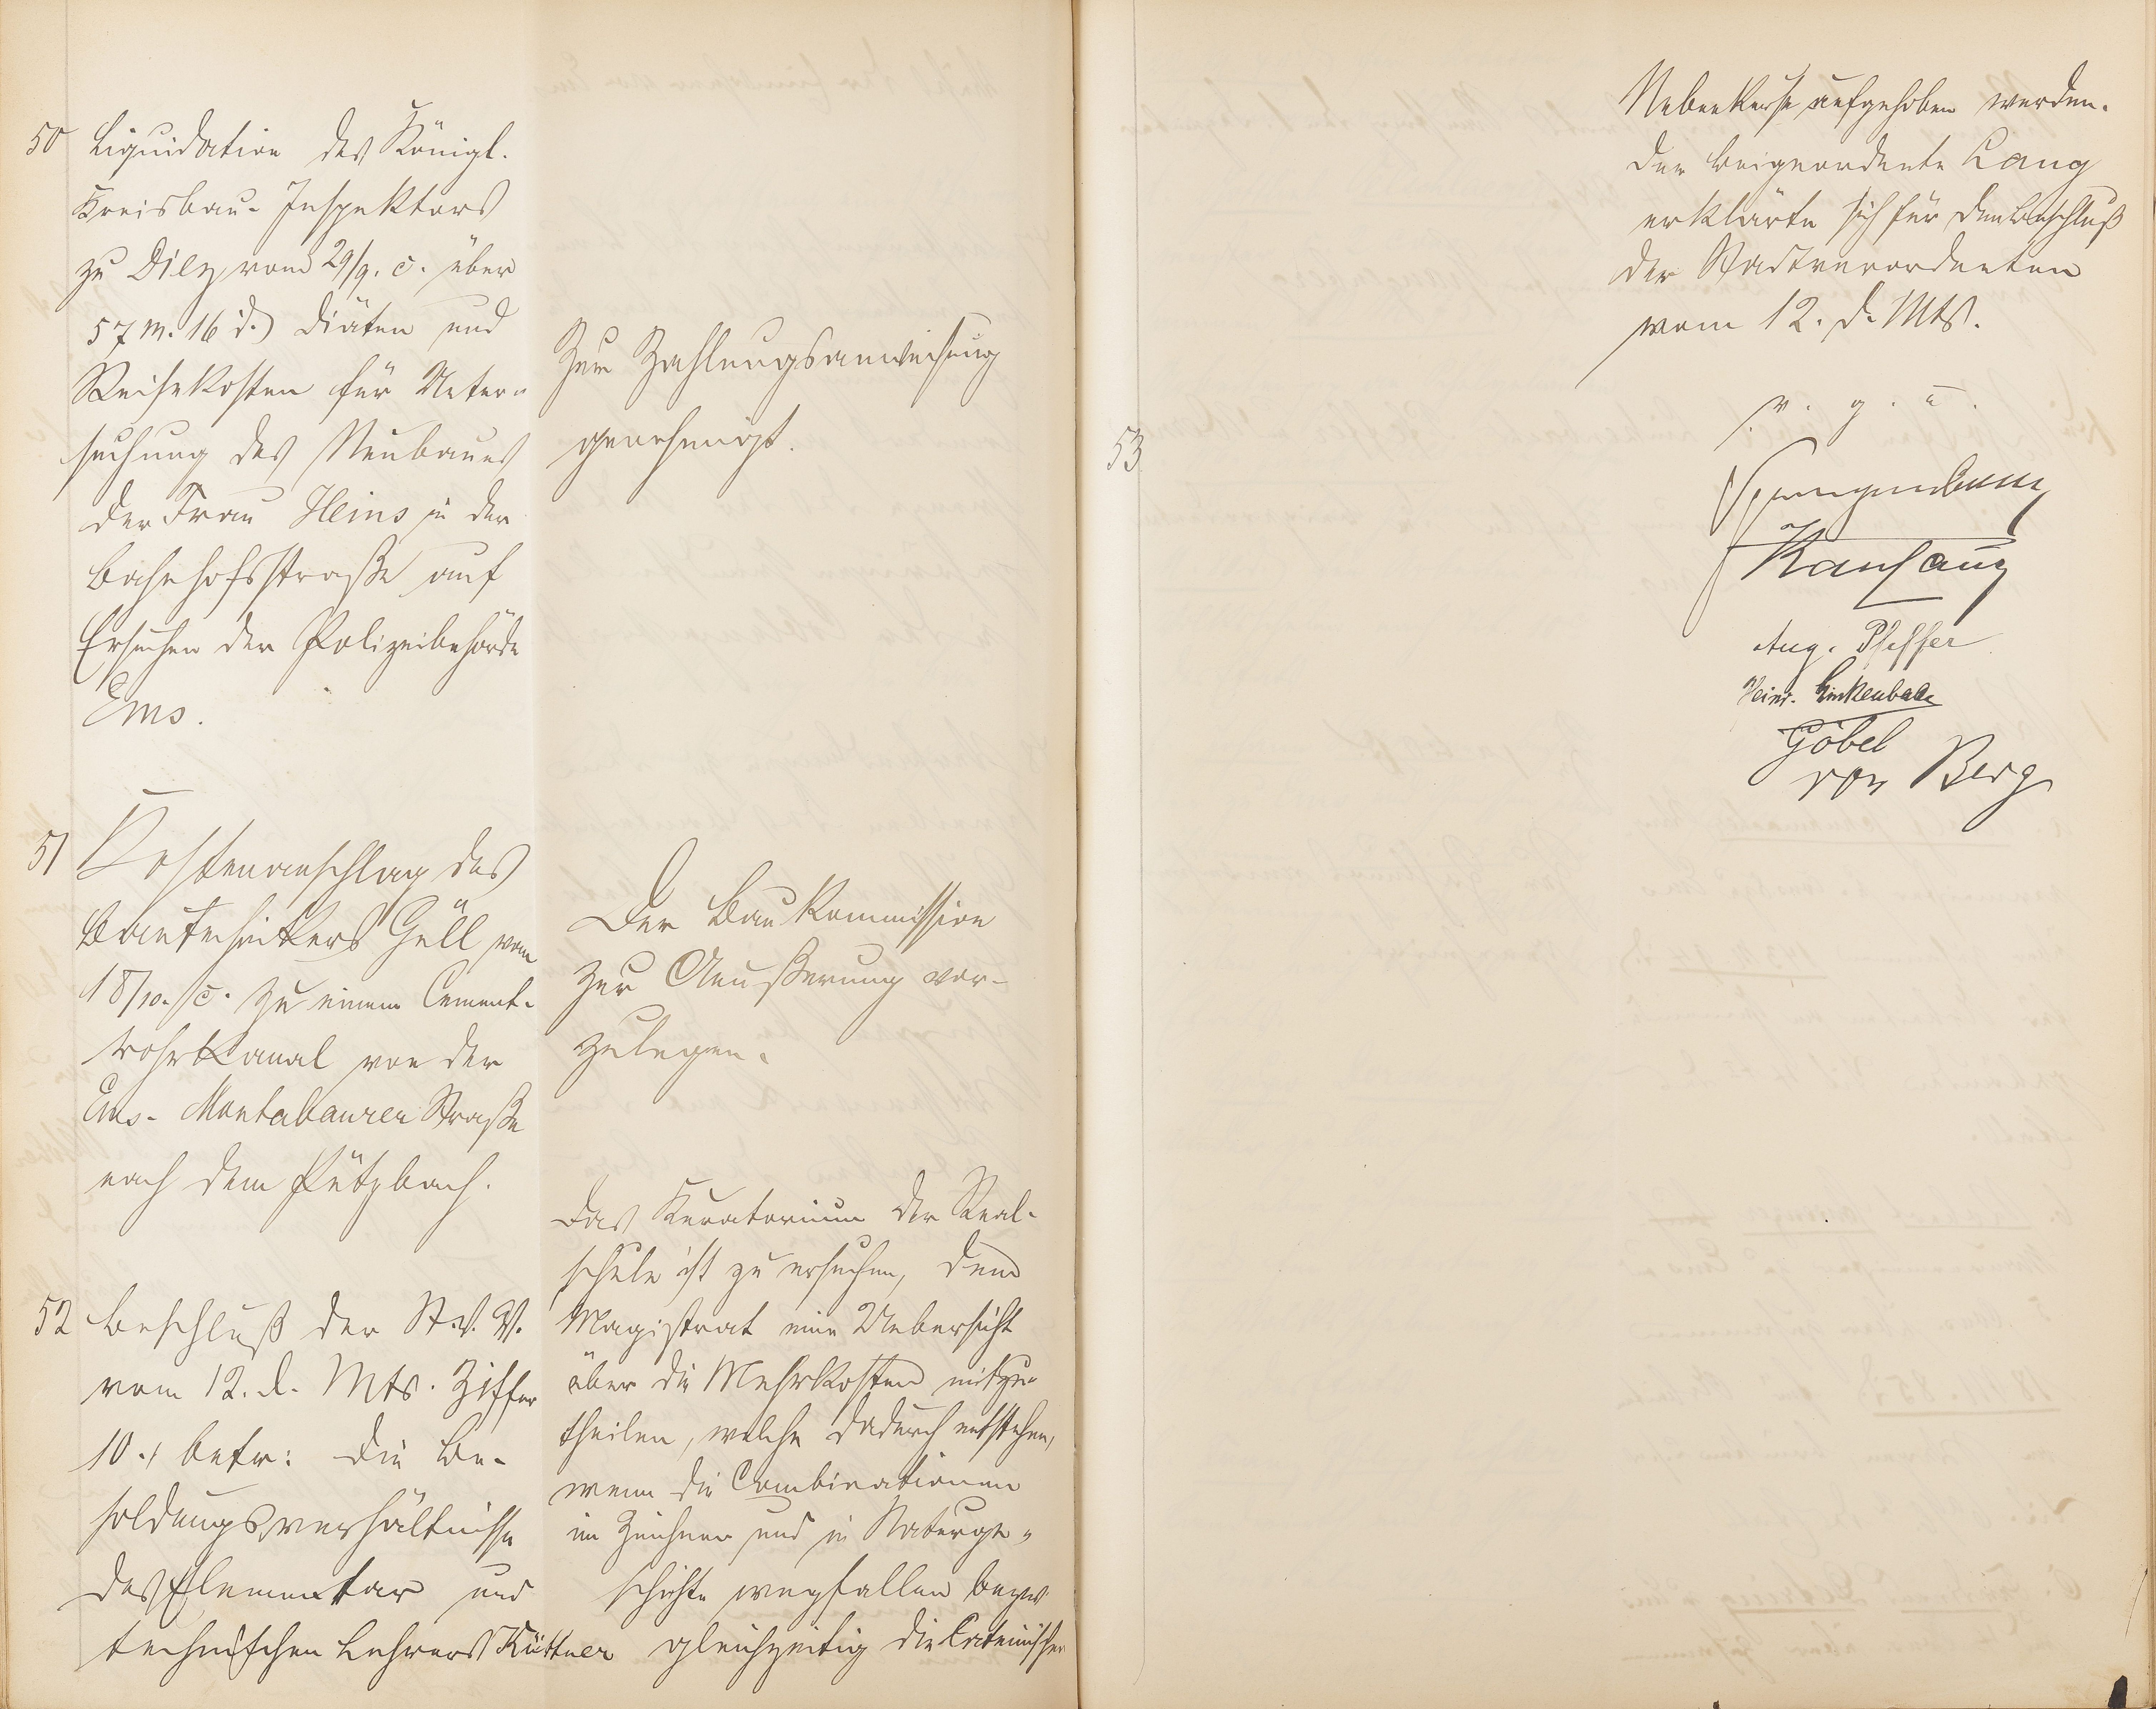 50 Liquidation des Königl.
Kreisbau-Inspektors
zu Diez vom 29/9. c. über
57 M. 16 d.) Diäten und
Reisekosten für Unter-
suchung des Neubaues
der Frau Heins in der
Bahnhofsstraße auf
Ersuchen der Polizeibehörde
Ems.
Zur Zahlungsanweisung
genehmigt.
51 Kostenanschlag des
Bautechnikers Güll vom
18/10. c. zu einem Cement-
rohrkanal von der
Ems-Montabaurer Straße
nach dem Pützbach.
Der Baukommission
zur Aeußerung vor-
zulegen.
52 Beschluß der St. V. V.
vom 12. d. Mts. Ziffer
10., betr: die Be-
soldungsverhältnisse
des Elementar und
technischen Lehrers Küttner
Das Kuratorium der Real-
schule ist zu ersuchen, dem
Magistrat eine Uebersicht
über die Mehrkosten mitzu-
theilen, welche dadurch entstehen,
wenn die Combinationen
im Zeichnen und in Naturge-
schichte wegfallen bezw.
gleichzeitig die Lateinischen
Nebenkurse aufgehoben werden.
Der Beigeordnete Lang
erklärte sich für den Beschluß
der Stadtverordneten
vom 12. d. Mts.
v. g. u.
53
Spangenberg
Aug. Pfeffer
Heinr. Linkenbach
Göbel
von Berg